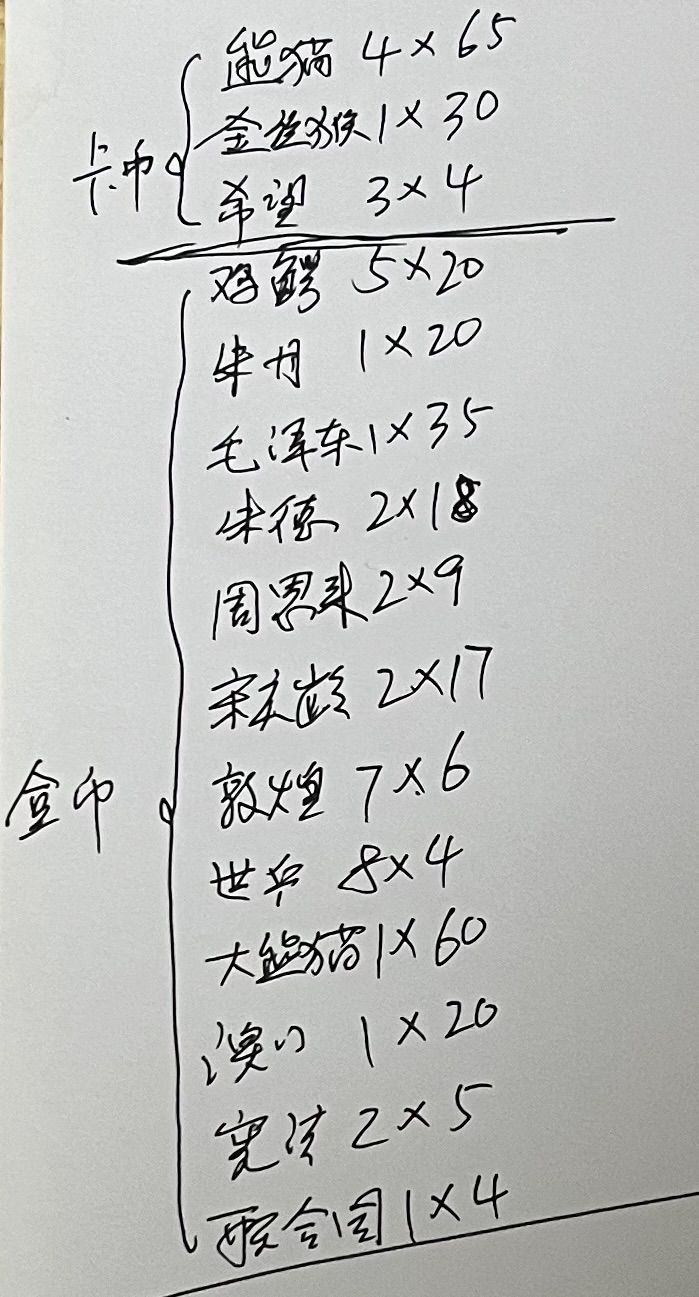 卡币
熊猫 4×65
金丝猴 1×30
希望 3×4
盒币
鸡鳄 5×20
朱丹 1×20
毛泽东 1×35
朱德 2×18
周恩来 2×9
宋庆龄 2×17
敦煌 7×6
世乒 8×4
大熊猫 1×60
澳门 1×20
宪法 2×5
联合国 1×4